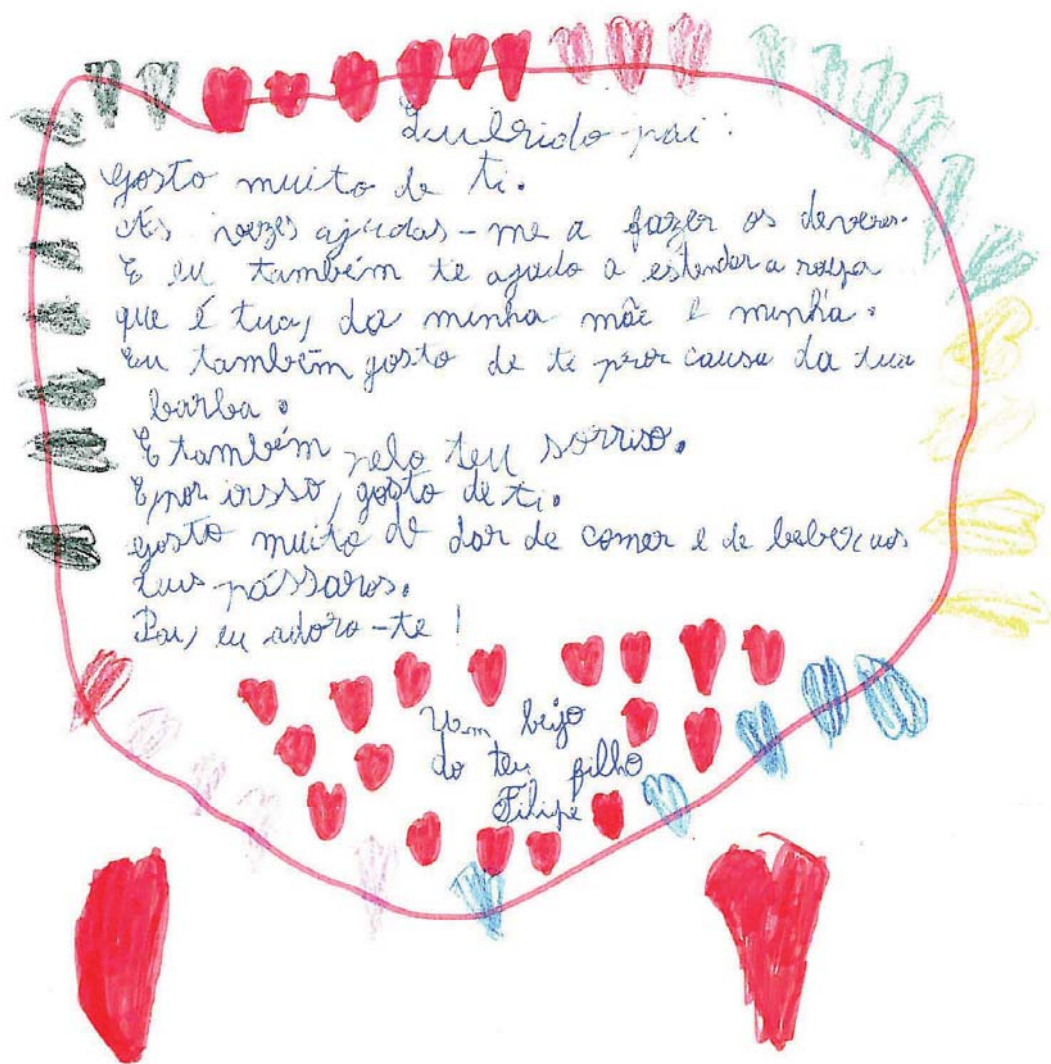 Querido pai:
Gosto muito de ti.
Às vezes ajudas-me a fazer os deveres.
E eu também te ajudo a estender a roupa
que é tua, da minha mãe e minha.
Eu também gosto de ti por causa da tua
barba.
E também pelo teu sorriso.
E por isso, gosto de ti.
Gosto muito de dar de comer e de beber aos
teus pássaros.
Pai, eu adoro-te!
Um beijo
do teu filho
Filipe